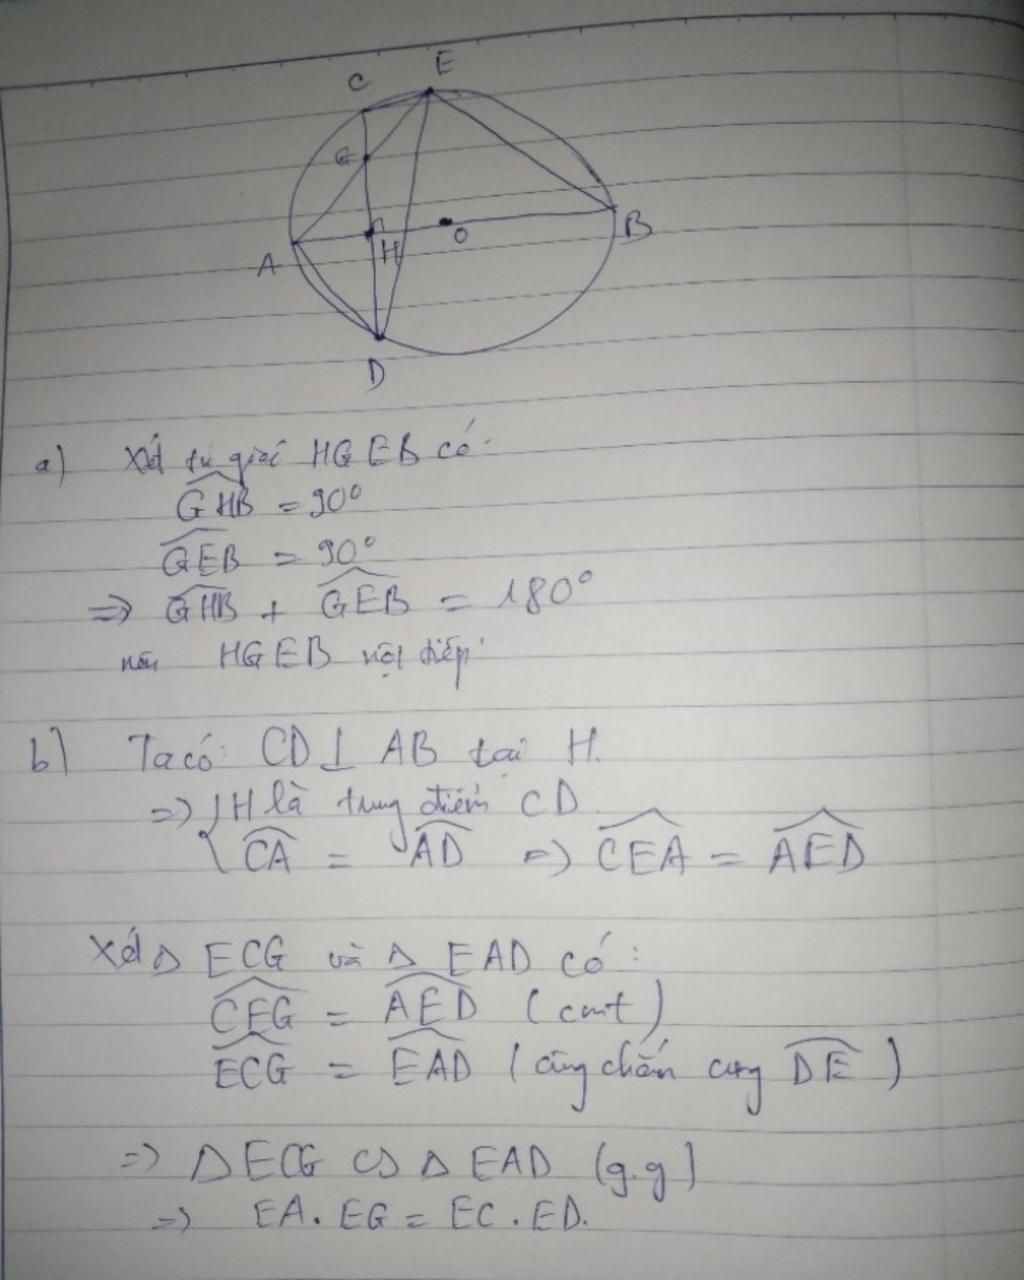 C E
G
A H O B
D
a) Xét tứ giác HGEB có:
GHB = 90°
GEB = 90°
=> GHB + GEB = 180°
nên HGEB nội tiếp
b) Ta có: CD ⊥ AB tại H.
=> { H là trung điểm CD
CA = AD => CEA = AED
Xét Δ ECG và Δ EAD có:
CEG = AED (cmt)
ECG = EAD (cùng chắn cung DE)
=> Δ ECG ∽ Δ EAD (g.g)
=> EA . EG = EC . ED.